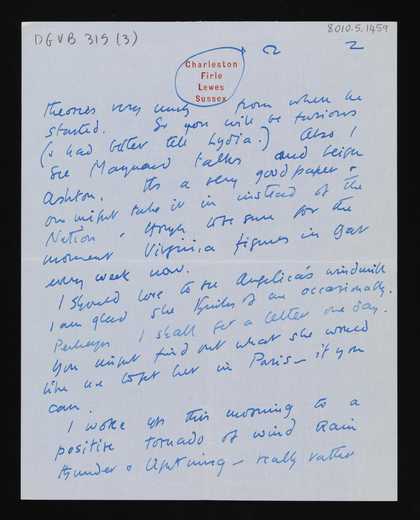 DGVB 315 (3)
8010.5.1459
2
Charleston
Firle
Lewes
Sussex
theories very much from when he
started. So you will be furious
(& had better tell Lydia.) Also I
see Maynard talks and Leigh
Ashton. Its a very good paper &
one might take it in instead of the
Nation. the
moment Virginia figures in
every week now.
I should love to see Angelica's windmill
I am glad she thinks of me occasionally.
Perhaps I shall get a letter one day.
You might find out what she would
like me to get her in Paris – if you
can.
I woke up this morning to a
positive tornado of wind rain
thunder & lightning – really rather